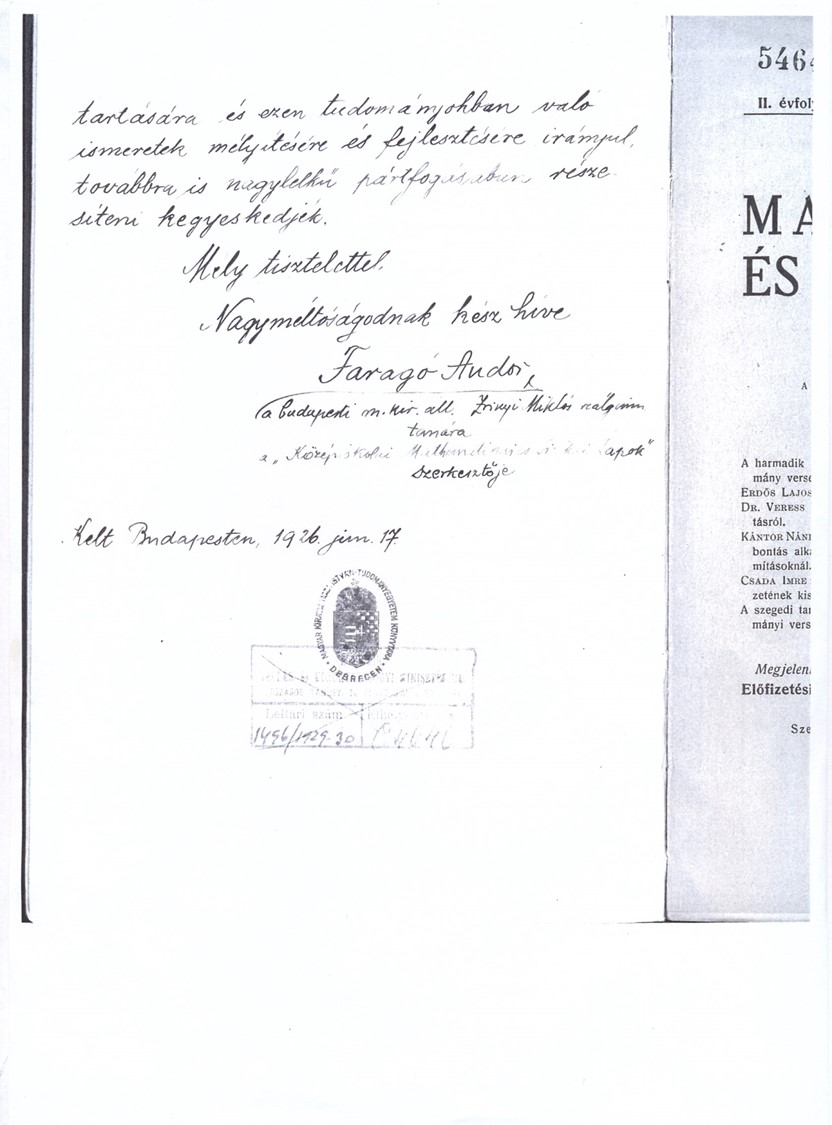 tartására és ezen tudományohban való
ismeretek mélyítésére és fejlesztésére irányul,
továbbra is nagylelkű pártfogásában része-
síteni kegyeskedjék.
Mely tisztelettel.
Nagyméltóságodnak kész híve
Faragó Andor,
a budapesti m. kir. áll. Zrinyi Miklós reálgimn
tanára
a „Középiskolai Mathematikai Lapok"
szerkesztője
Kelt Budapesten, 1926. jun. 17.
MAGYAR KIRÁLYI TISZA ISTVÁN-TUDOMÁNYEGYETEM KÖNYVTÁRA
DEBRECEN
Leltári szám
1496/1929-30
5464
II. évfoly
MA
ÉS
A
A harmadik
mány verse
ERDŐS LAJOS
DR. VERESS
tásról.
KÁNTOR NÁN
bontás alka
mításoknál.
CSADA IMRE
zetének kis
A szegedi ta
mányi vers
Megjelen
Előfizetési
Sze